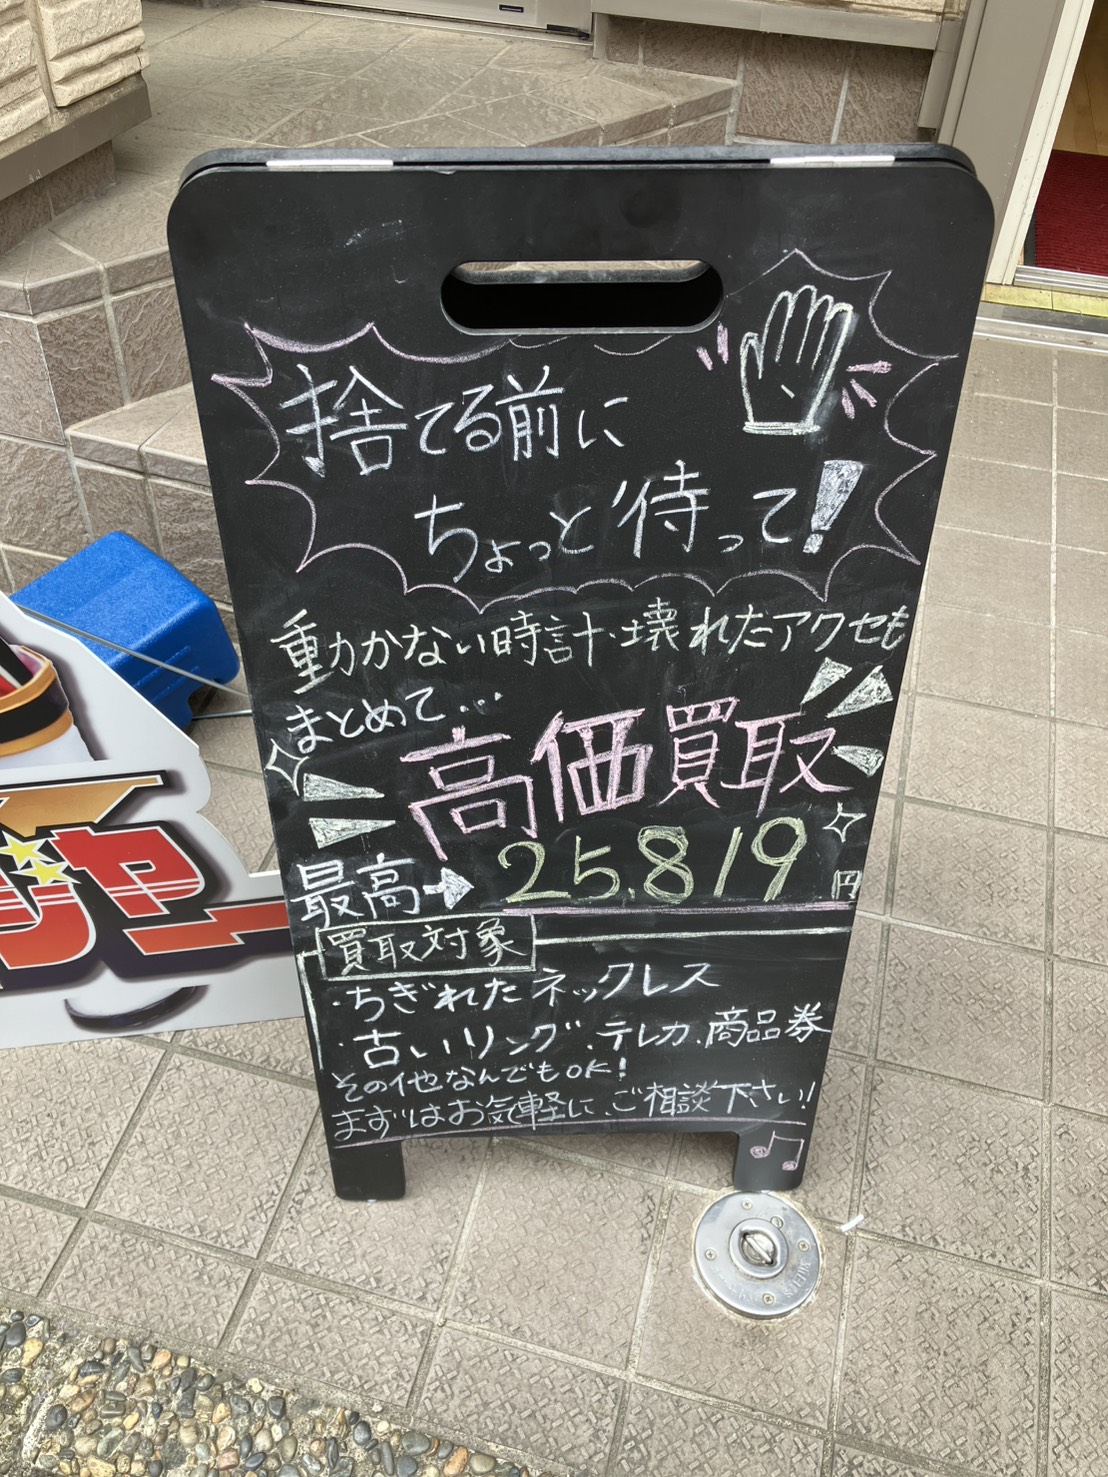 捨てる前に
ちょっと待って!
動かない時計・壊れたアクセも
まとめて...
高価買取
最高→25,819円
買取対象
・ちぎれたネックレス
・古いリング、テレカ、商品券
その他なんでもOK!
まずはお気軽にご相談下さい!
ジャー